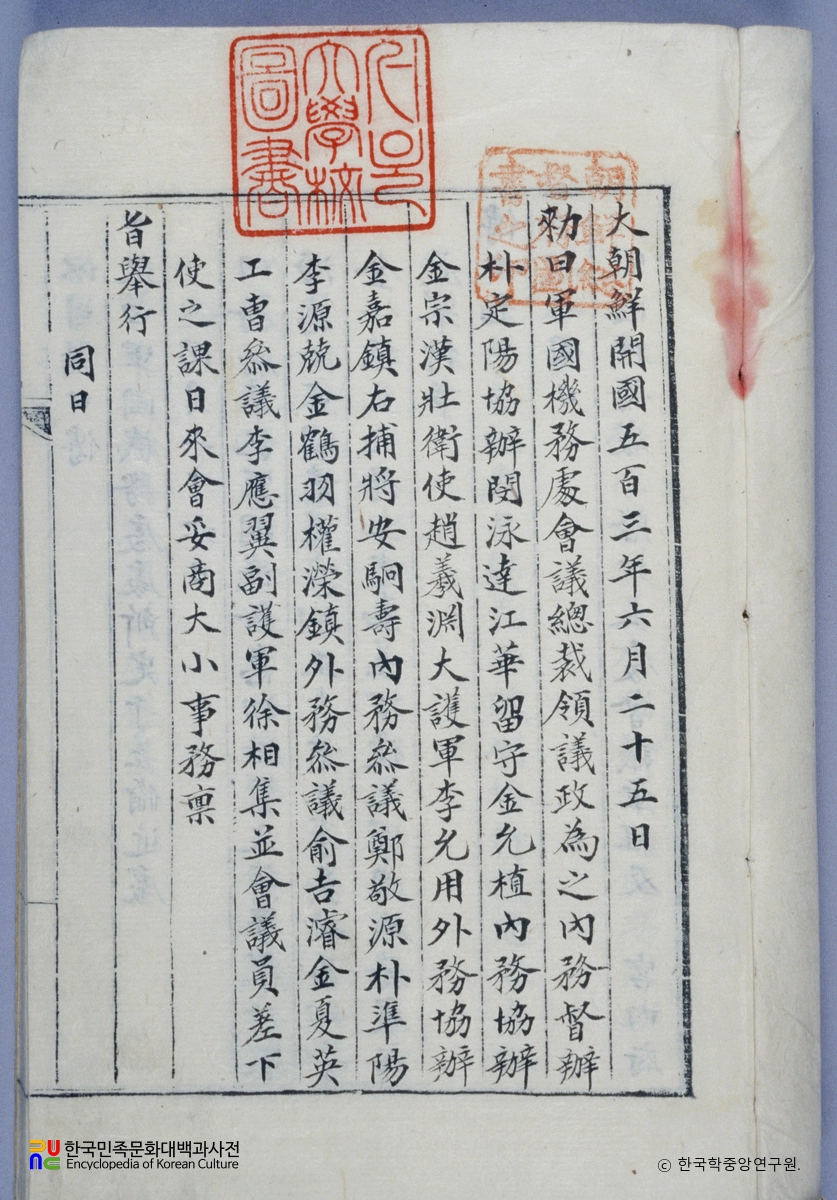 大朝鮮開國五百三年六月二十五日
勑曰軍國機務處會議總裁領議政為之內務督辦
朴定陽協辦閔泳達江華留守金允植內務協辦
金宗漢壯衛使趙羲淵大護軍李允用外務協辦
金嘉鎮右捕將安駉壽內務叅議鄭敬源朴準陽
李源兢金鶴羽權瀅鎮外務叅議俞吉濬金夏英
工曹叅議李應翼副護軍徐相集並會議員差下
使之課日來會妥商大小事務禀
旨舉行
同日
大學校
圖書
朝鮮總
督府圖
書之印
한국민족문화대백과사전
Encyclopedia of Korean Culture
© 한국학중앙연구원.